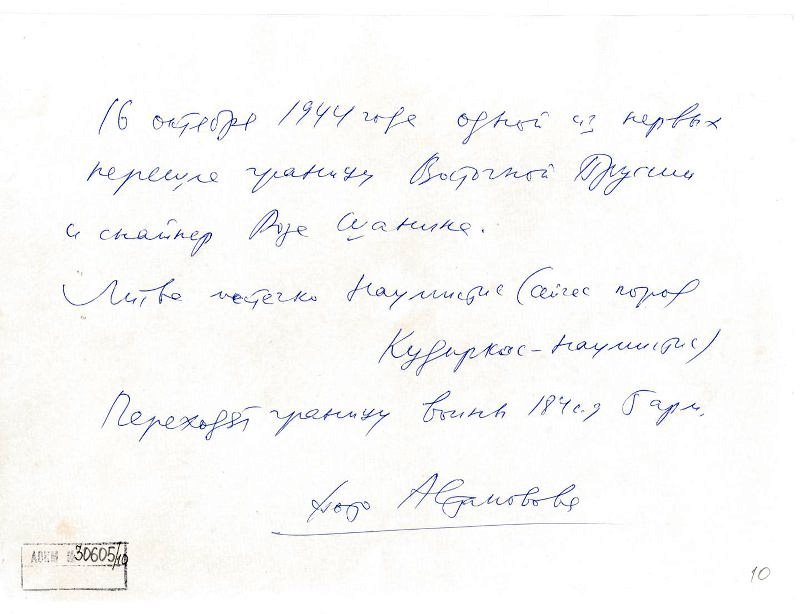 16 октября 1944 года одной из первых
перешла границу Восточной Пруссии
и снайпер Роза Шанина.
Литва местечко Наумистис (сейчас город
Кудиркос-Наумистис)
Переходят границу воины 184 с.д. 5 арм.
фото
АОКМ № 30605/10
10